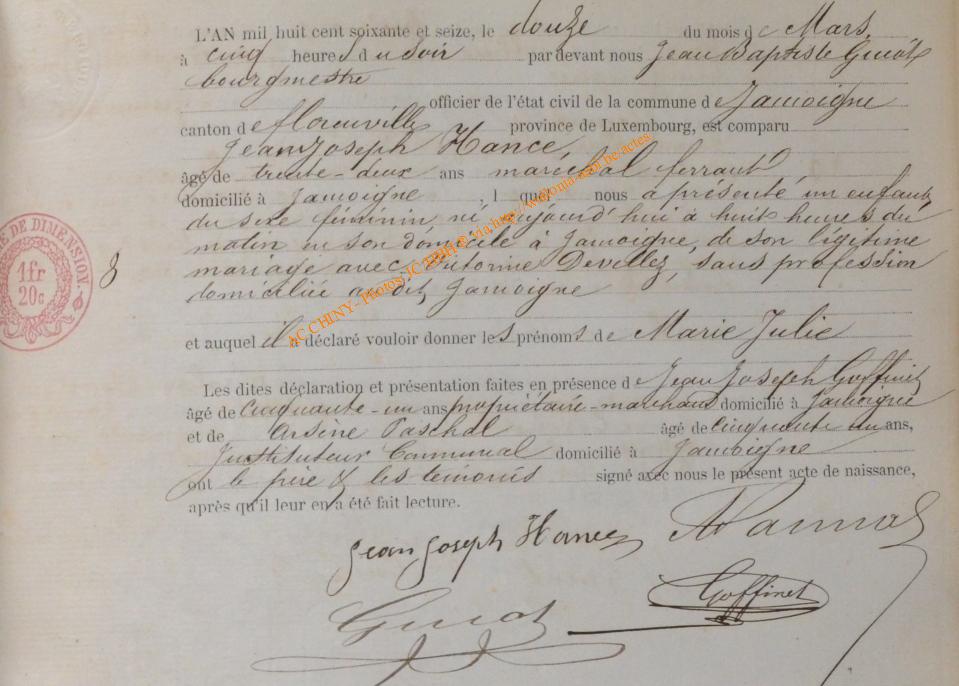 L'AN mil huit cent soixante et seize, le douze du mois de Mars,
à cinq heures du soir par devant nous Jean Baptiste Guiot
bourgmestre
officier de l'état civil de la commune de Jamoigne
canton de florenville province de Luxembourg, est comparu
Jean Joseph Hance,
âgé de trente-deux ans maréchal ferrant
domicilié à Jamoigne lequel nous a présenté un enfant
du sexe féminin né, aujourd'hui à huit heures du
matin en son domicile à Jamoigne, de son légitime
mariage avec Victorine Devillez, sans profession
domiciliée au dit Jamoigne
8
RE DE DIMENSION.
1fr
20c
et auquel il a déclaré vouloir donner les prénoms de Marie Julie
Les dites déclaration et présentation faites en présence de Jean Joseph Goffinet
âgé de cinquante-un ans propriétaire-marchand domicilié à Jamoigne
et de Arsène Paschal âgé de cinquante un ans,
Instituteur Communal domicilié à Jamoigne
ont le père & les témoins signé avec nous le présent acte de naissance,
après qu'il leur en a été fait lecture.
Jean Joseph Hance
Goffinet
Guiot
AC CHINY - Photos JC